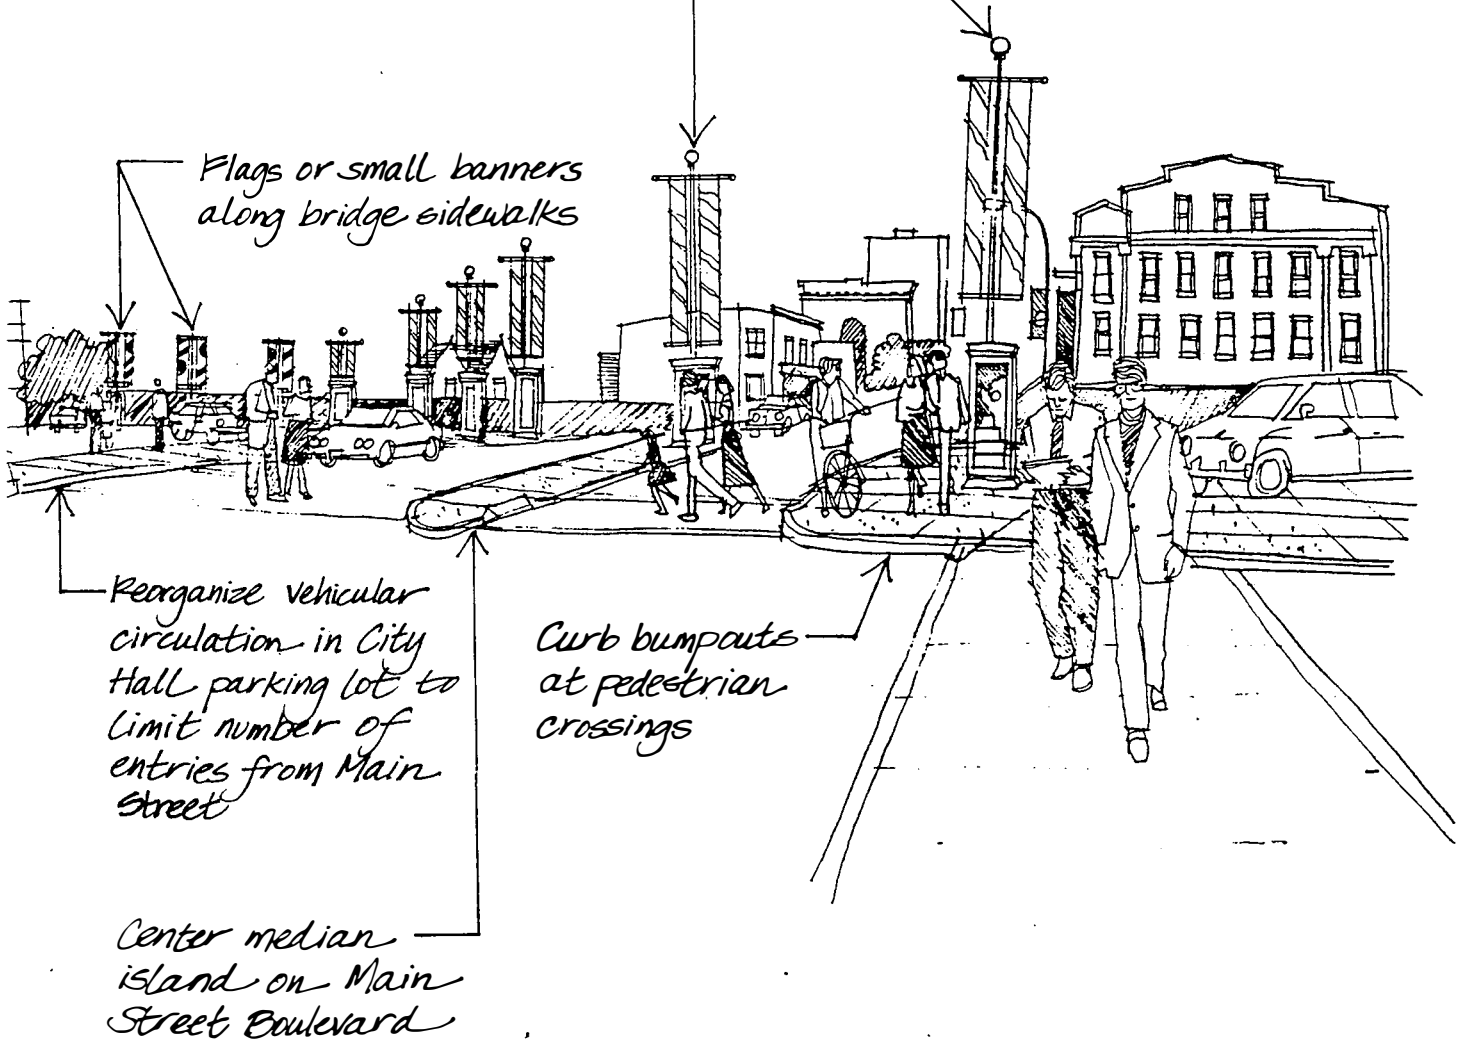 Flags or small banners
along bridge sidewalks
Reorganize vehicular
circulation in City
Hall parking lot to
limit number of
entries from Main
Street
Curb bumpouts
at pedestrian
crossings
Center median
island on Main
Street Boulevard